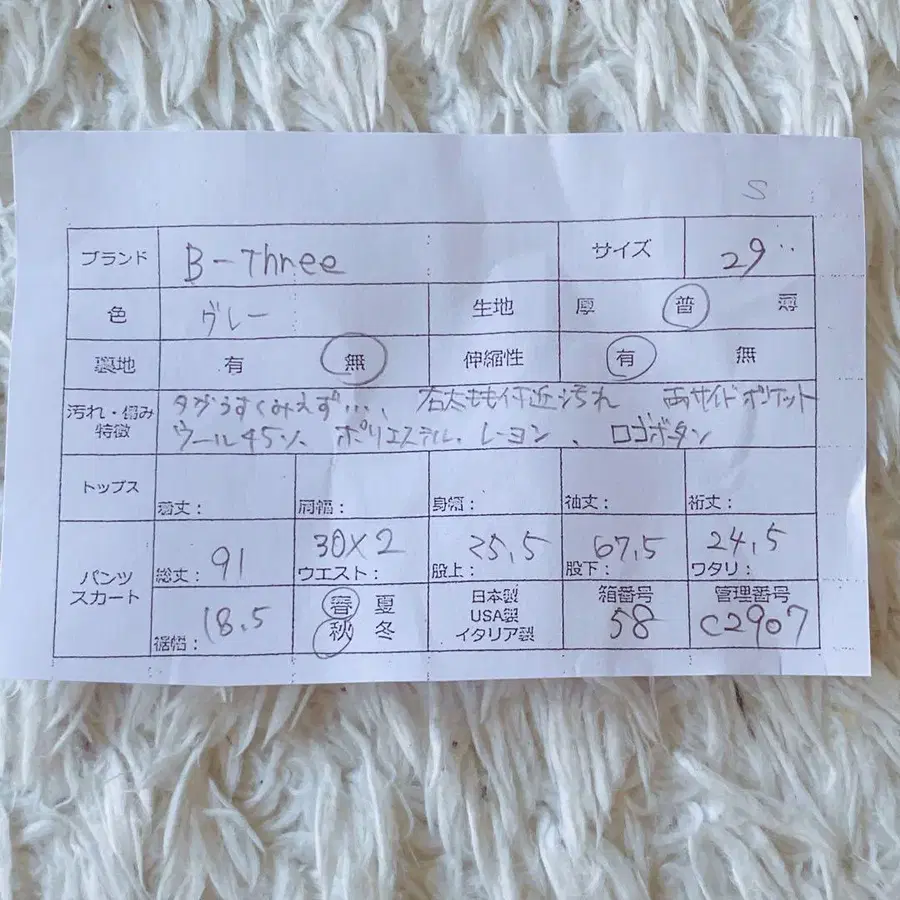 S
ブランド B-Three サイズ 29
色 グレー 生地 厚 普 薄
裏地 有 無 伸縮性 有 無
汚れ・傷み 特徴 タグうすくみえず…、右太もも付近汚れ 両サイドポケット
ウール45%、ポリエステル、レーヨン、ロゴボタン
トップス 着丈: 肩幅: 身幅: 袖丈: 裄丈:
パンツ スカート 総丈: 91 ウエスト: 30×2 股上: 25.5 股下: 67.5 ワタリ: 24.5
裾幅: 18.5 春 夏 秋 冬 日本製 USA製 イタリア製 箱番号 58 管理番号 C2907